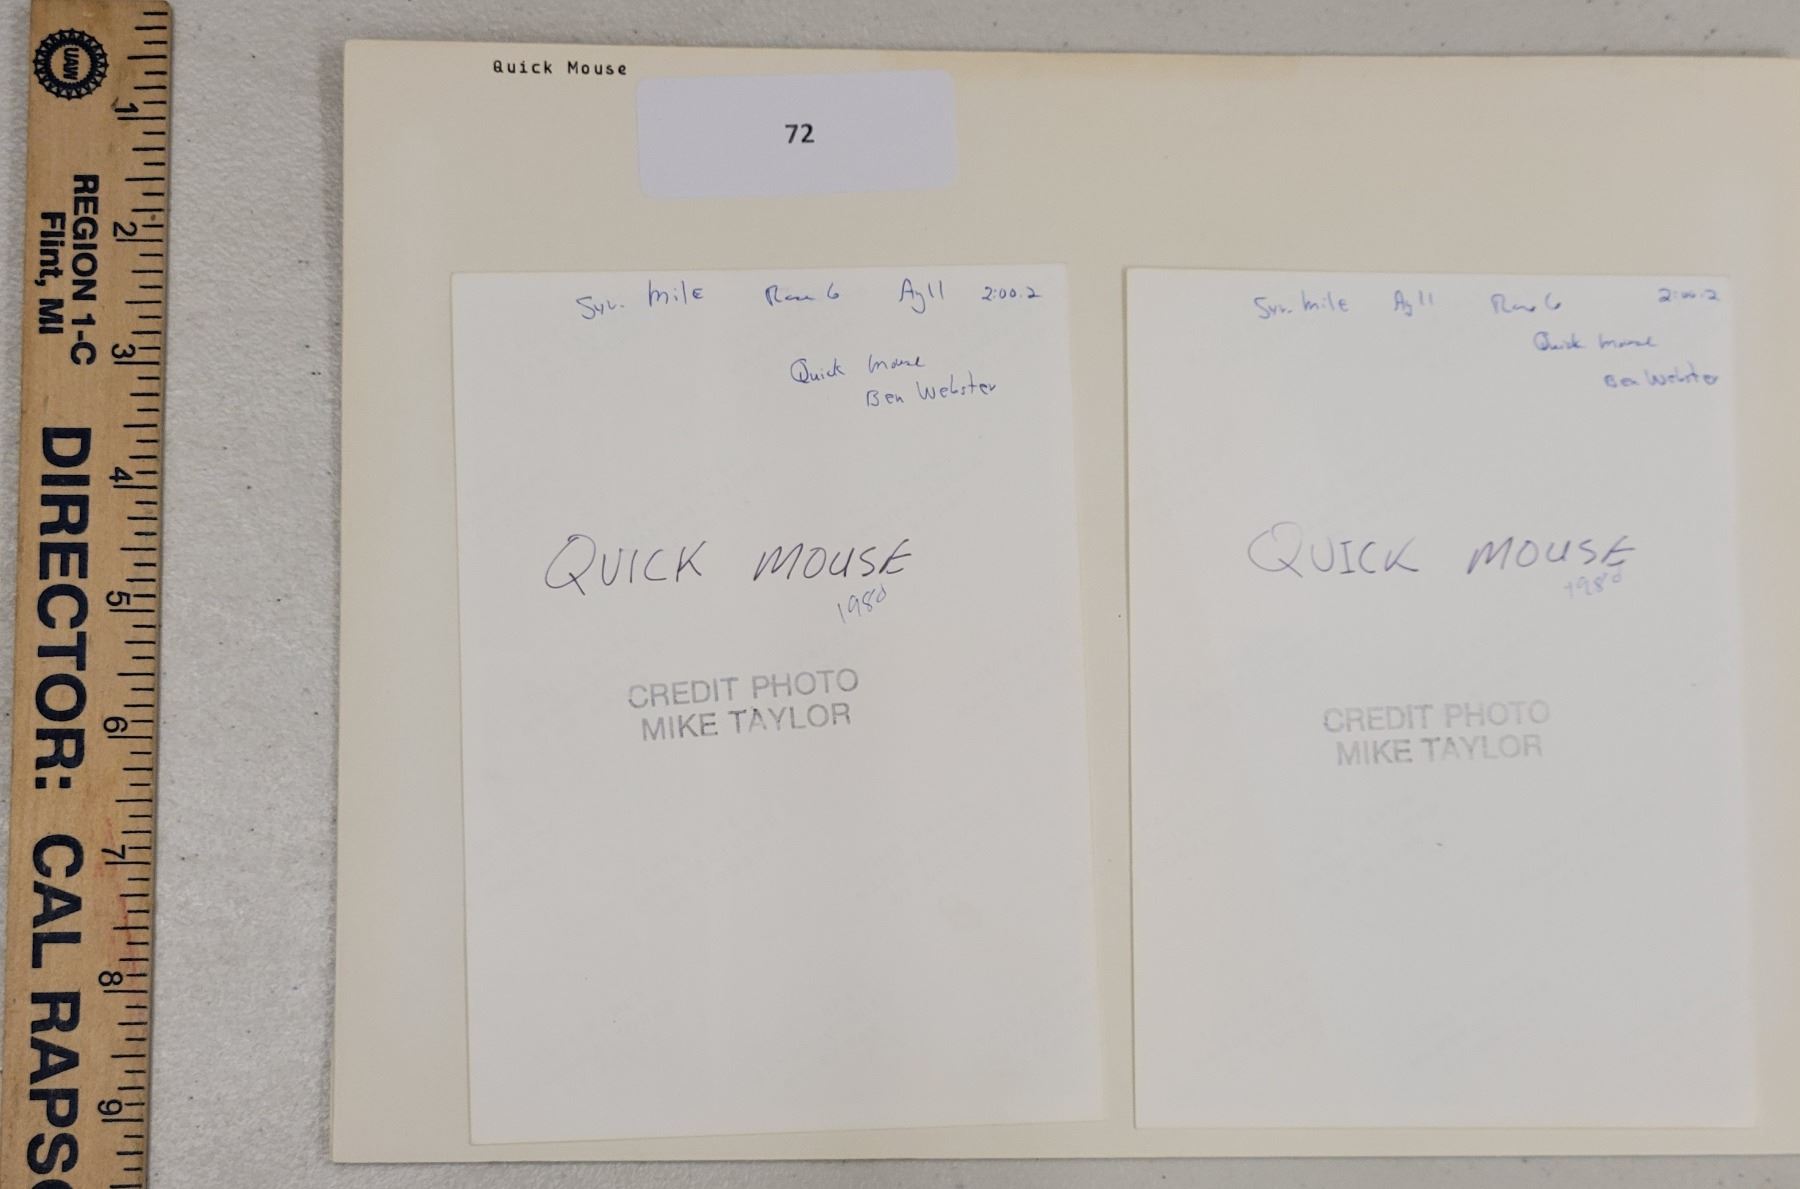 Quick Mouse
72
Syr. Mile Race 6 Ag 11 2:00.2
Quick Mouse
Ben Webster
QUICK MOUSE
1980
CREDIT PHOTO
MIKE TAYLOR
Syr. Mile Ag 11 Race 6 2:00.2
Quick Mouse
Ben Webster
QUICK MOUSE
1980
CREDIT PHOTO
MIKE TAYLOR
UAW
REGION 1-C
Flint, MI
DIRECTOR: CAL RAPS
1 2 3 4 5 6 7 8 9